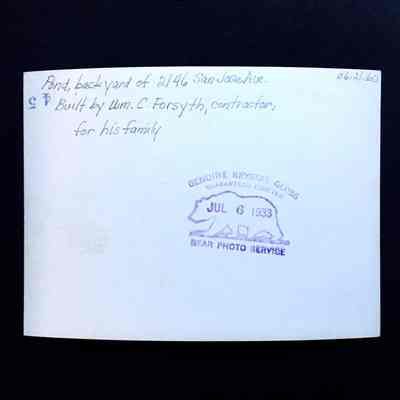 Pond, backyard of 2146 San Jose Ave.
Built by Wm. C Forsyth, contractor,
for his family
GENUINE KRYSTAL GLOSS
GUARANTEED
JUL 6 1933
BEAR PHOTO SERVICE